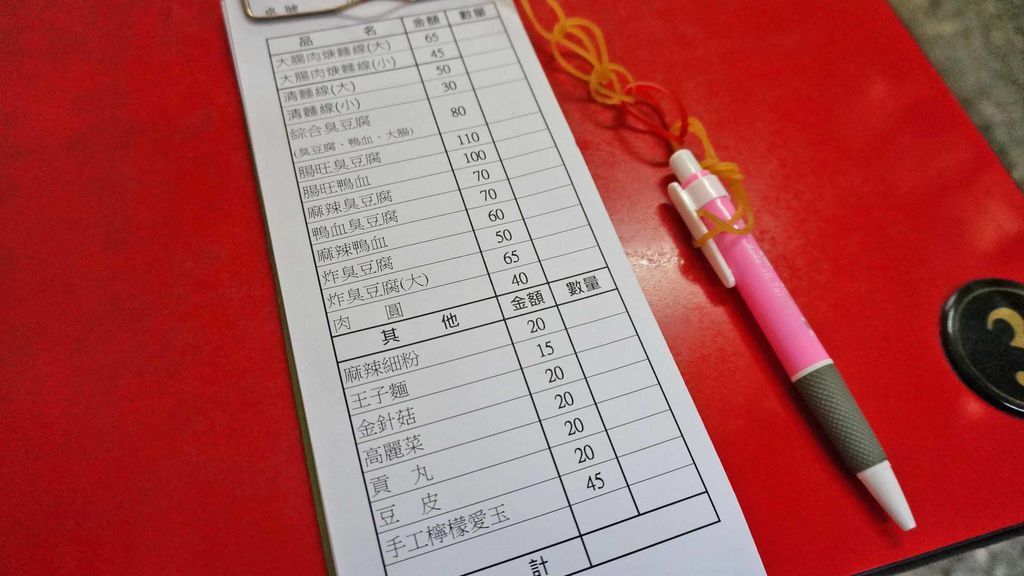 桌號
品 名 金額 數量
大腸肉焿麵線(大) 65
大腸肉焿麵線(小) 45
清麵線(大) 50
清麵線(小) 30
綜合臭豆腐 80
(臭豆腐、鴨血、大腸)
腸旺臭豆腐 110
腸旺鴨血 100
麻辣臭豆腐 70
鴨血臭豆腐 70
麻辣鴨血 60
炸臭豆腐 50
炸臭豆腐(大) 65
肉 圓 40
其 他 金額 數量
麻辣細粉 20
王子麵 15
金針菇 20
高麗菜 20
貢 丸 20
豆 皮 20
手工檸檬愛玉 45
計